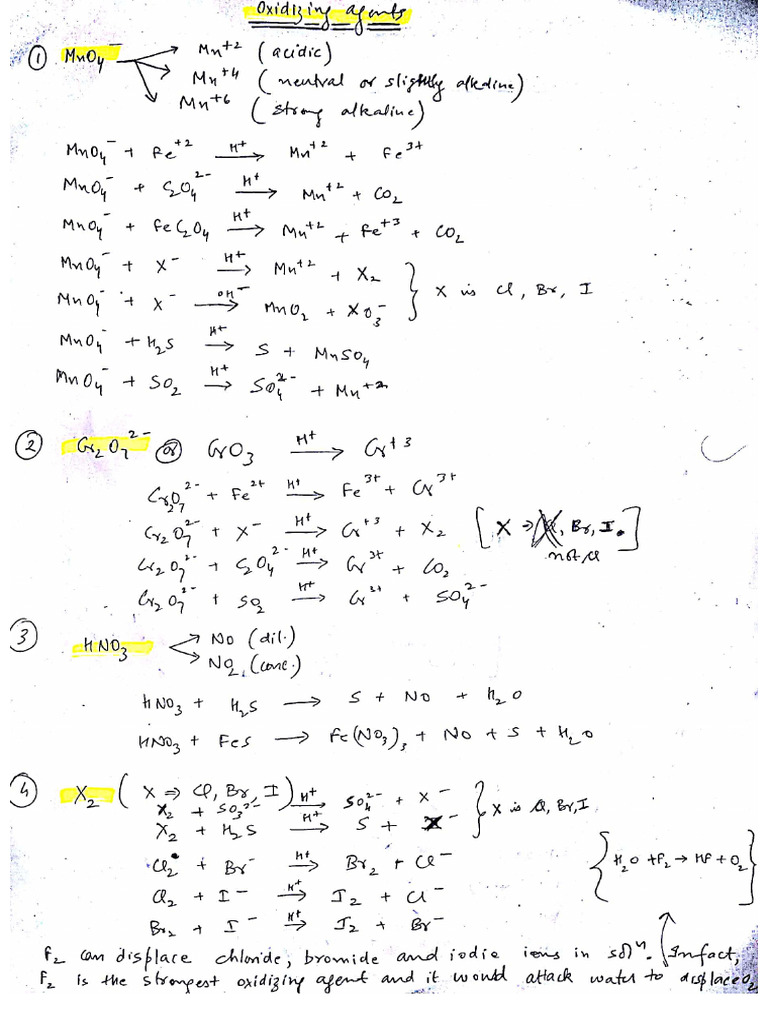 Oxidizing agents
① MnO₄⁻ → Mn⁺² (acidic)
→ Mn⁺⁴ (neutral or slightly alkaline)
→ Mn⁺⁶ (strong alkaline)
MnO₄⁻ + Fe⁺² —H⁺→ Mn⁺² + Fe³⁺
MnO₄⁻ + C₂O₄²⁻ —H⁺→ Mn⁺² + CO₂
MnO₄⁻ + FeC₂O₄ —H⁺→ Mn⁺² + Fe⁺³ + CO₂
MnO₄⁻ + X⁻ —H⁺→ Mn⁺² + X₂
MnO₄⁻ + X⁻ —OH⁻→ MnO₂ + XO₃⁻ } X is Cl, Br, I
MnO₄⁻ + H₂S —H⁺→ S + MnSO₄
MnO₄⁻ + SO₂ —H⁺→ SO₄²⁻ + Mn⁺²
② Cr₂O₇²⁻ or CrO₃ —H⁺→ Cr⁺³
Cr₂O₇²⁻ + Fe²⁺ —H⁺→ Fe³⁺ + Cr³⁺
Cr₂O₇²⁻ + X⁻ —H⁺→ Cr⁺³ + X₂ [X ⇒ Cl, Br, I.]
not Cl
Cr₂O₇²⁻ + C₂O₄²⁻ —H⁺→ Cr³⁺ + CO₂
Cr₂O₇²⁻ + SO₂ —H⁺→ Cr³⁺ + SO₄²⁻
③ HNO₃ → NO (dil.)
→ NO₂ (conc.)
HNO₃ + H₂S → S + NO + H₂O
HNO₃ + FeS → Fe(NO₃)₃ + NO + S + H₂O
④ X₂ (X ⇒ Cl, Br, I)
X₂ + SO₃²⁻ —H⁺→ SO₄²⁻ + X⁻
X₂ + H₂S —H⁺→ S + X⁻ } X is Cl, Br, I
Cl₂ + Br⁻ —H⁺→ Br₂ + Cl⁻ {H₂O + F₂ → HF + O₂}
Cl₂ + I⁻ —H⁺→ I₂ + Cl⁻
Br₂ + I⁻ —H⁺→ I₂ + Br⁻
F₂ can displace chloride, bromide and iodie ions in solⁿ. Infact,
F₂ is the strongest oxidizing agent and it would attack water to displace O₂